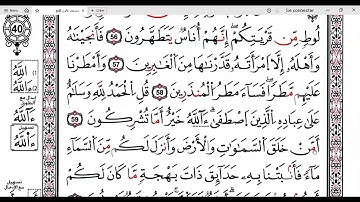 Se connecter
40
لُوطٍ مِّن قَرْيَتِكُمْ إِنَّهُمْ أُنَاسٌ يَتَطَهَّرُونَ 56 فَأَنجَيْنَٰهُ
وَأَهْلَهُۥ إِلَّا ٱمْرَأَتَهُۥ قَدَّرْنَٰهَا مِنَ ٱلْغَٰبِرِينَ 57 وَأَمْطَرْنَا
عَلَيْهِم مَّطَرًا فَسَآءَ مَطَرُ ٱلْمُنذَرِينَ 58 قُلِ ٱلْحَمْدُ لِلَّهِ وَسَلَٰمٌ
عَلَىٰ عِبَادِهِ ٱلَّذِينَ ٱصْطَفَىٰٓ ءَآللَّهُ خَيْرٌ أَمَّا تُشْرِكُونَ 59
أَمَّنْ خَلَقَ ٱلسَّمَٰوَٰتِ وَٱلْأَرْضَ وَأَنزَلَ لَكُم مِّنَ ٱلسَّمَآءِ
مَآءً فَأَنۢبَتْنَا بِهِۦ حَدَآئِقَ ذَاتَ بَهْجَةٍ مَّا كَانَ لَكُمْ